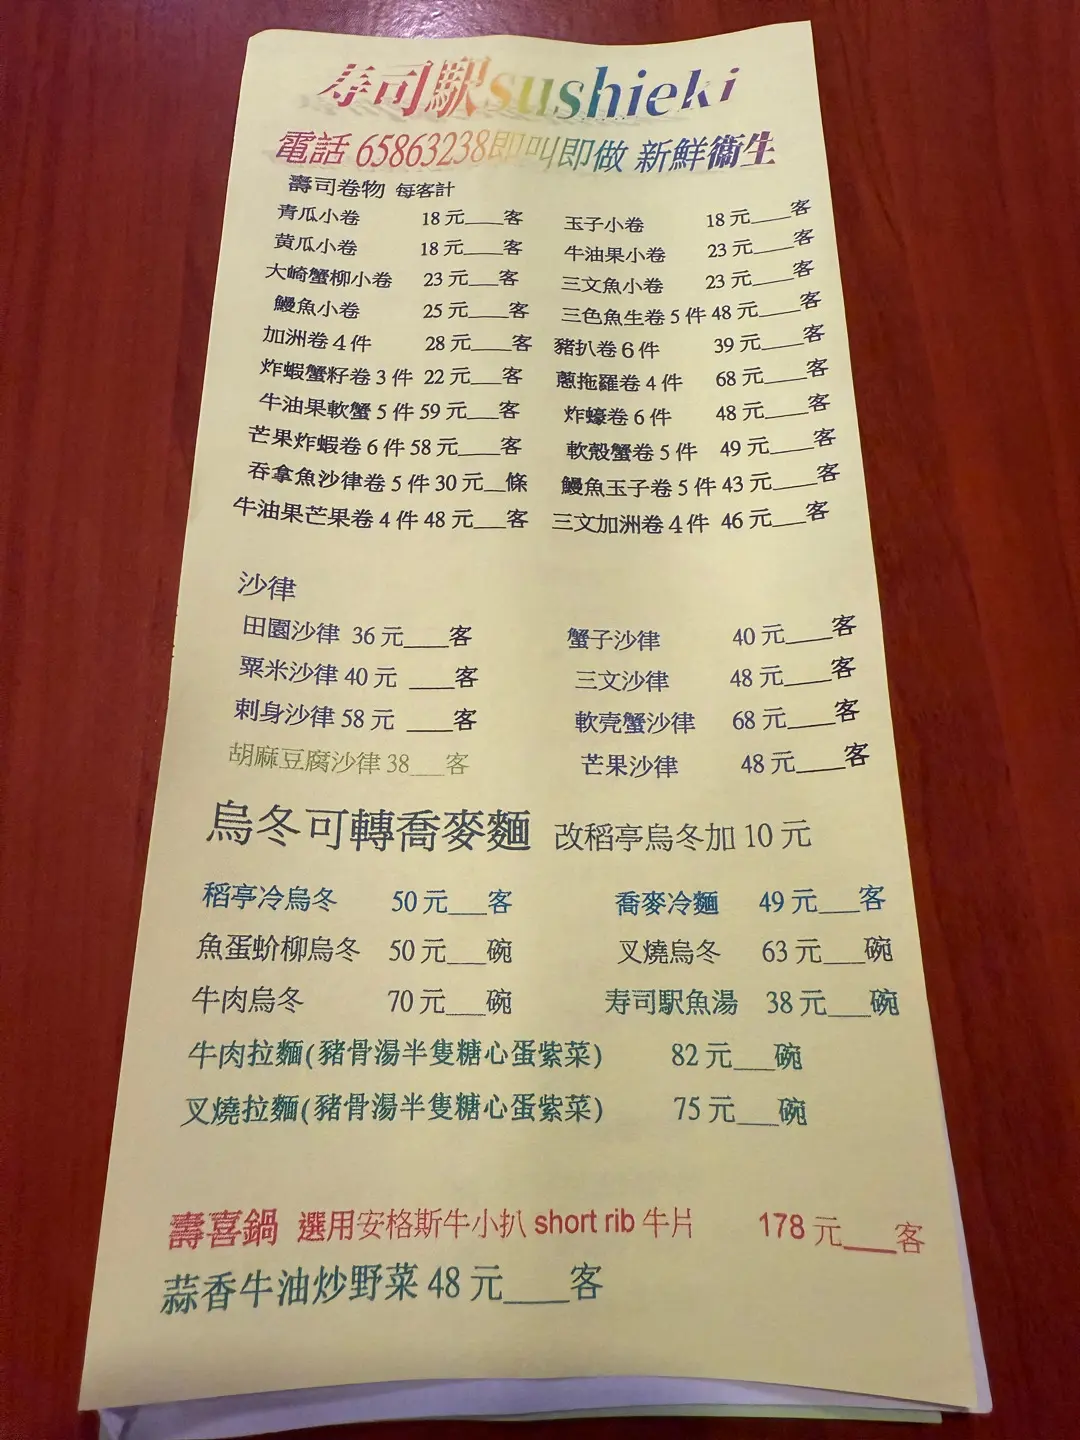 寿司駅sushieki
電話 65863238即叫即做 新鮮衞生
壽司卷物 每客計
青瓜小卷 18 元____客 玉子小卷 18 元____客
黄瓜小卷 18 元____客 牛油果小卷 23 元____客
大崎蟹柳小卷 23 元___客 三文魚小卷 23 元____客
鰻魚小卷 25 元____客 三色魚生卷 5 件 48 元____客
加洲卷 4 件 28 元____客 豬扒卷 6 件 39 元____客
炸蝦蟹籽卷 3 件 22 元___客 蔥拖羅卷 4 件 68 元____客
牛油果軟蟹 5 件 59 元___客 炸蠔卷 6 件 48 元____客
芒果炸蝦卷 6 件 58 元____客 軟殼蟹卷 5 件 49 元____客
吞拿魚沙律卷 5 件 30 元__條 鰻魚玉子卷 5 件 43 元____客
牛油果芒果卷 4 件 48 元___客 三文加洲卷 4 件 46 元___客
沙律
田園沙律 36 元____客 蟹子沙律 40 元____客
粟米沙律 40 元 ____客 三文沙律 48 元____客
刺身沙律 58 元 ____客 軟壳蟹沙律 68 元____客
胡麻豆腐沙律 38___客 芒果沙律 48 元____客
烏冬可轉喬麥麵 改稻亭烏冬加 10 元
稻亭冷烏冬 50 元___客 喬麥冷麵 49 元___客
魚蛋蚧柳烏冬 50 元___碗 叉燒烏冬 63 元___碗
牛肉烏冬 70 元___碗 寿司駅魚湯 38 元___碗
牛肉拉麵(豬骨湯半隻糖心蛋紫菜) 82 元___碗
叉燒拉麵(豬骨湯半隻糖心蛋紫菜) 75 元___碗
壽喜鍋 選用安格斯牛小扒 short rib 牛片 178 元____客
蒜香牛油炒野菜 48 元____客